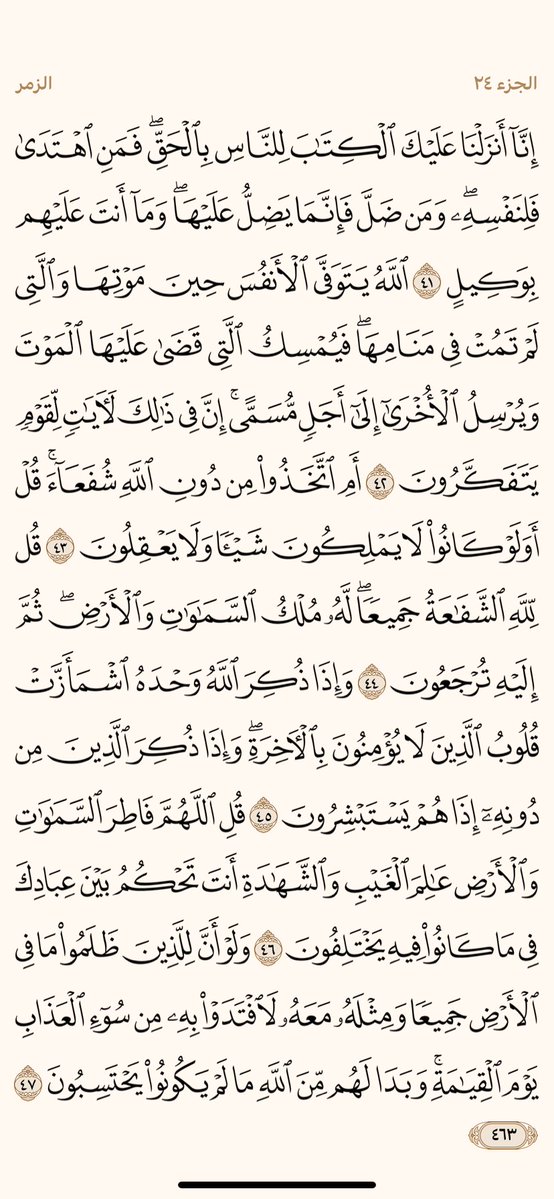 الجزء ٢٤
الزمر
إِنَّآ أَنزَلۡنَا عَلَيۡكَ ٱلۡكِتَٰبَ لِلنَّاسِ بِٱلۡحَقِّۖ فَمَنِ ٱهۡتَدَىٰ
فَلِنَفۡسِهِۦۖ وَمَن ضَلَّ فَإِنَّمَا يَضِلُّ عَلَيۡهَاۖ وَمَآ أَنتَ عَلَيۡهِم
بِوَكِيلٍ ٤١ ٱللَّهُ يَتَوَفَّى ٱلۡأَنفُسَ حِينَ مَوۡتِهَا وَٱلَّتِي
لَمۡ تَمُتۡ فِي مَنَامِهَاۖ فَيُمۡسِكُ ٱلَّتِي قَضَىٰ عَلَيۡهَا ٱلۡمَوۡتَ
وَيُرۡسِلُ ٱلۡأُخۡرَىٰٓ إِلَىٰٓ أَجَلٖ مُّسَمًّىۚ إِنَّ فِي ذَٰلِكَ لَأٓيَٰتٖ لِّقَوۡمٖ
يَتَفَكَّرُونَ ٤٢ أَمِ ٱتَّخَذُواْ مِن دُونِ ٱللَّهِ شُفَعَآءَۚ قُلۡ
أَوَلَوۡ كَانُواْ لَا يَمۡلِكُونَ شَيۡـٔٗا وَلَا يَعۡقِلُونَ ٤٣ قُل
لِّلَّهِ ٱلشَّفَٰعَةُ جَمِيعٗاۖ لَّهُۥ مُلۡكُ ٱلسَّمَٰوَٰتِ وَٱلۡأَرۡضِۖ ثُمَّ
إِلَيۡهِ تُرۡجَعُونَ ٤٤ وَإِذَا ذُكِرَ ٱللَّهُ وَحۡدَهُ ٱشۡمَأَزَّتۡ
قُلُوبُ ٱلَّذِينَ لَا يُؤۡمِنُونَ بِٱلۡأٓخِرَةِۖ وَإِذَا ذُكِرَ ٱلَّذِينَ مِن
دُونِهِۦٓ إِذَا هُمۡ يَسۡتَبۡشِرُونَ ٤٥ قُلِ ٱللَّهُمَّ فَاطِرَ ٱلسَّمَٰوَٰتِ
وَٱلۡأَرۡضِ عَٰلِمَ ٱلۡغَيۡبِ وَٱلشَّهَٰدَةِ أَنتَ تَحۡكُمُ بَيۡنَ عِبَادِكَ
فِي مَا كَانُواْ فِيهِ يَخۡتَلِفُونَ ٤٦ وَلَوۡ أَنَّ لِلَّذِينَ ظَلَمُواْ مَا فِي
ٱلۡأَرۡضِ جَمِيعٗا وَمِثۡلَهُۥ مَعَهُۥ لَٱفۡتَدَوۡاْ بِهِۦ مِن سُوٓءِ ٱلۡعَذَابِ
يَوۡمَ ٱلۡقِيَٰمَةِۚ وَبَدَا لَهُم مِّنَ ٱللَّهِ مَا لَمۡ يَكُونُواْ يَحۡتَسِبُونَ ٤٧
٤٦٣